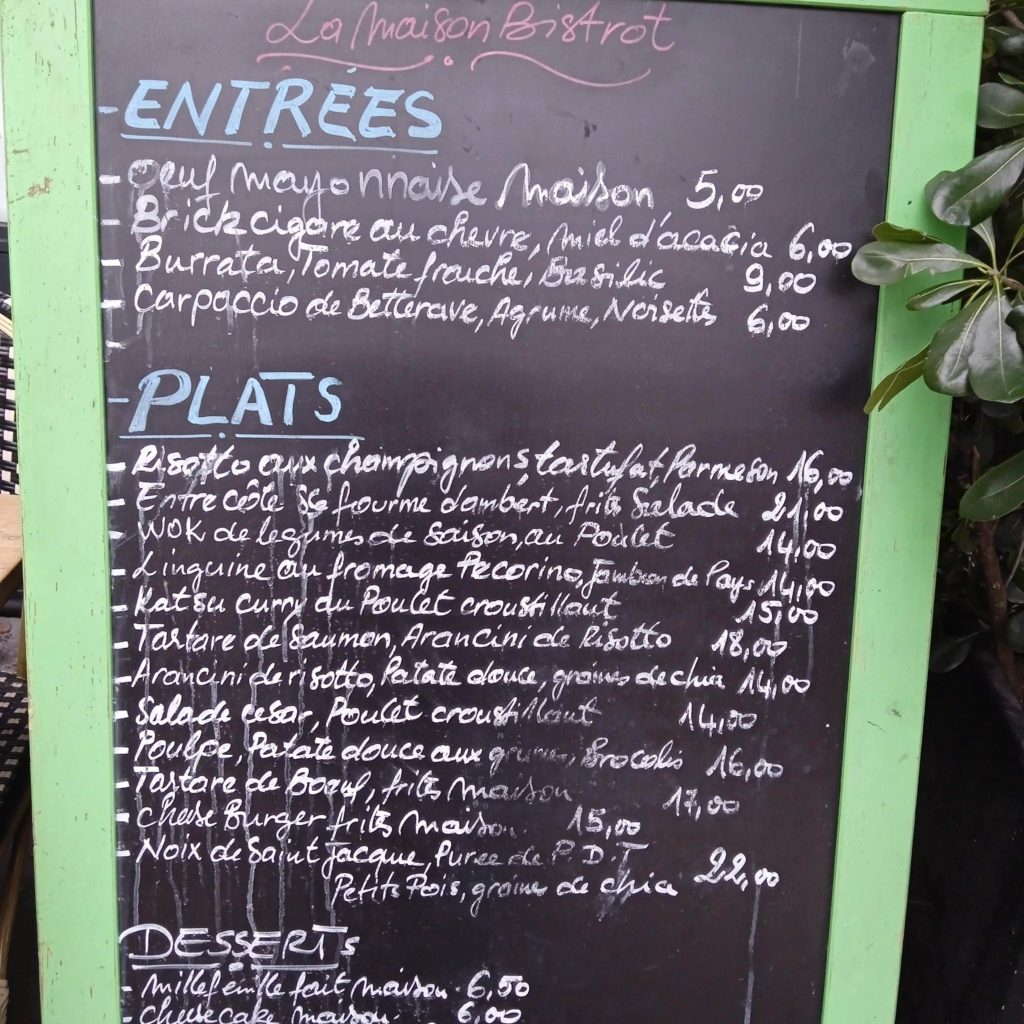 La Maison Bistrot
- ENTRÉES
- Oeuf mayonnaise Maison 5,00
- Brick cigare au chevre, miel d'acacia 6,00
- Burrata, Tomate fraiche, Basilic 9,00
- Carpaccio de Betterave, Agrume, Noisettes 6,00
-
- PLATS
- Risotto aux champignons, tartufat, Parmesan 16,00
- Entrecôte fourme d'ambert, frites Salade 21,00
- WOK de legumes de saison, au Poulet 14,00
- Linguine au fromage Pecorino, Jambon de Pays 14,00
- Katsu curry au Poulet croustillant 15,00
- Tartare de Saumon, Arancini de Risotto 18,00
- Arancini de risotto, Patate douce, graines de chia 14,00
- Salade cesar, Poulet croustillant 14,00
- Poulpe, Patate douce aux Brocolis 16,00
- Tartare de Boeuf, frites maison 17,00
- cheese Burger frites Maison. 15,00
- Noix de Saint Jacque, Puree de P.D.T
Petits Pois, graine de chia 22,00
DESSERTs
- millefeuille fait maison. 6,50
- cheesecake maison. 6,00